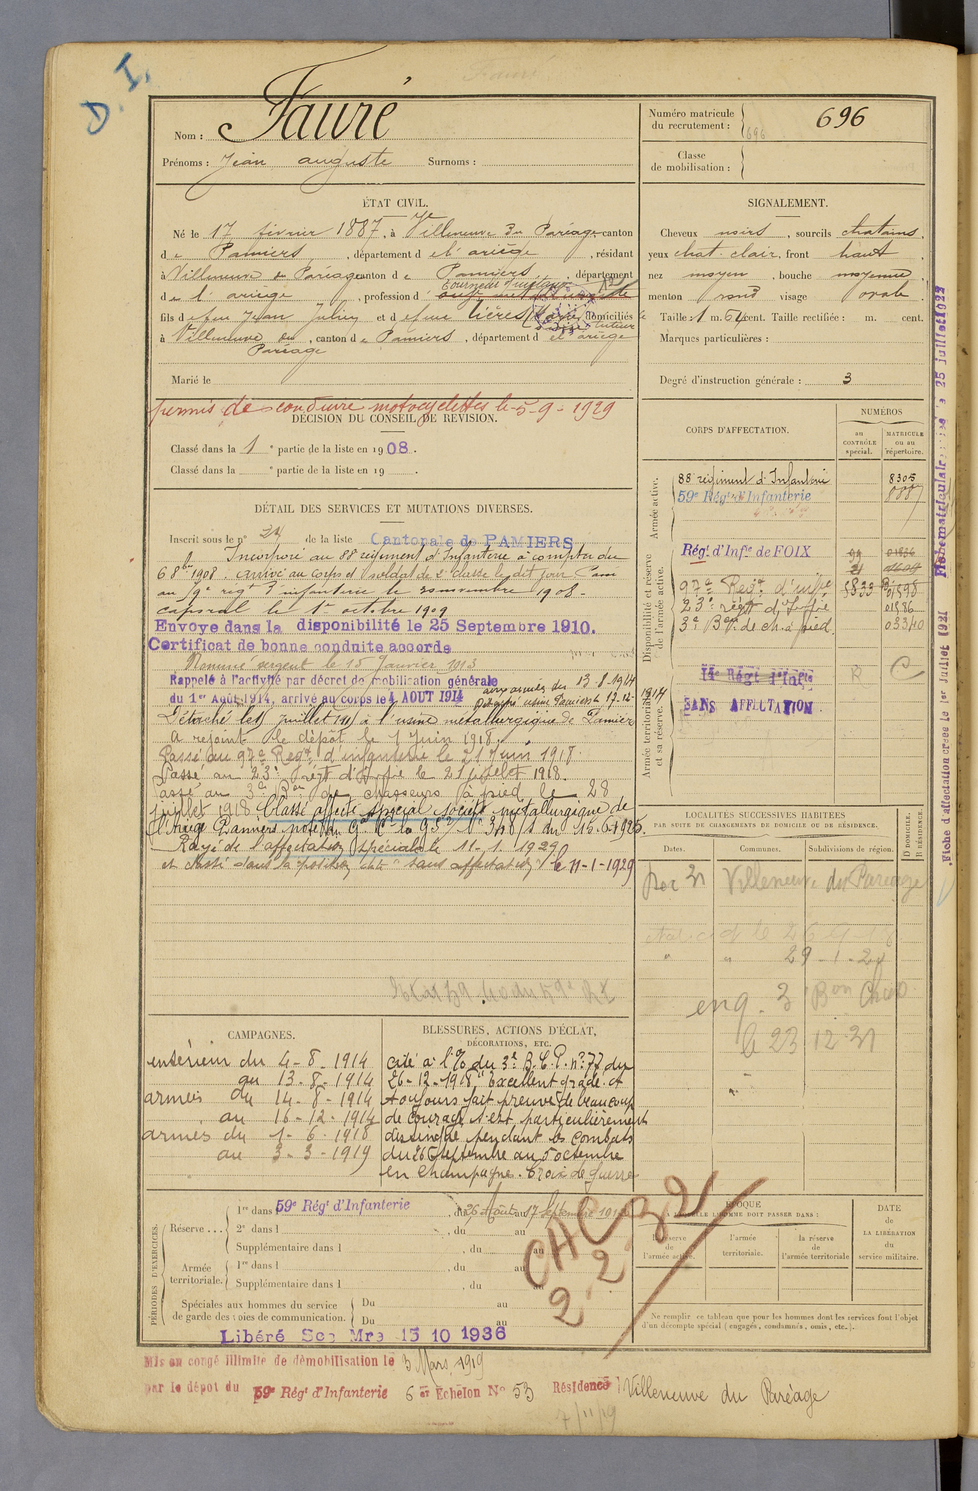 D. I.
Nom : Fauré
Prénoms : Jean auguste Surnoms :
Numéro matricule du recrutement : 696
696
Classe de mobilisation :
ÉTAT CIVIL.
Né le 17 février 1887, à Villeneuve du Paréage canton
de Pamiers, département de l'ariège, résidant
à Villeneuve du Paréage canton de Pamiers, département
de l'ariège, profession d
fils de feu Jean Julien et de feue domiciliés
tuteur
à Villeneuve du Paréage, canton de Pamiers, département d el'ariège
Marié le
SIGNALEMENT.
Cheveux noirs, sourcils chatains,
yeux chat. clair, front haut
nez moyen, bouche moyenne,
menton rond visage ovale.
Taille : 1 m. 64 cent. Taille rectifiée : m. cent.
Marques particulières :
Degré d'instruction générale : 3
permis de conduire motocyclettes le 5-9-1929
DÉCISION DU CONSEIL DE REVISION.
Classé dans la 1e partie de la liste en 1908.
Classé dans la e partie de la liste en 19 .
DÉTAIL DES SERVICES ET MUTATIONS DIVERSES.
Inscrit sous le n° 24 de la liste Cantonale de PAMIERS
Incorporé au 88e régiment d'Infanterie à compter du
6 8bre 1908. arrivé au corps et soldat de 2e classe le dit jour. Passé
au 59e regt d'infanterie le novembre 1908.
caporal le 1er octobre 1909
Envoyé dans la disponibilité le 25 Septembre 1910.
Certificat de bonne conduite accordé
Nommé sergent le 15 Janvier 1913
Rappelé à l'activité par décret de mobilisation générale
du 1er Août 1914, arrivé au corps le 4 AOUT 1914
aux armées du 13-8-1914
Détaché usine Pamiers le 17-12-1914
Détaché le juillet à l'usine métallurgique de Pamiers
A rejoint le dépôt le 1 Juin 1918.
Passé au 97e Regt d'infanterie le 21 Juin 1918.
Passé au 23e régt d'Infrie le 21 juillet 1918.
Passé au 3e Bon de chasseurs à pied le 28
juillet 1918. Classé affecté spécial société métallurgique de
l'Ariège Pamiers du 16.6.1925.
Rayé de l'affectation spéciale le 11-1-1929
et classé dans la position dite "sans affectation" le 11-1-1929
CORPS D'AFFECTATION.
NUMÉROS
au CONTRÔLE spécial.
MATRICULE ou au répertoire.
Armée active.
88 régiment d'Infanterie 8305
59e Régt d'Infanterie
Disponibilité et réserve de l'armée active.
Régt d'Infie de FOIX
97e Regt d'infie 5833
23e régt d'Infrie 01886
3e Bon de ch. à pied 03340
Armée territoriale et sa réserve.
14e Régt d'Infie
SANS AFFECTATION
R C
LOCALITÉS SUCCESSIVES HABITÉES
PAR SUITE DE CHANGEMENTS DE DOMICILE OU DE RÉSIDENCE.
Dates. Communes. Subdivisions de région. D DOMICILE. R RÉSIDENCE.
Villeneuve du Paréage
29-1-24
eng. 3 Bon Chass
le 23 12-31
CAMPAGNES.
intérieur du 4-8-1914
au 13-8-1914
armées du 14-8-1914
au 16-12-1914
armées du 1-6-1918
au 3-3-1919
BLESSURES, ACTIONS D'ÉCLAT,
DÉCORATIONS, ETC.
cité à l'O/ du 3e B.C.P. n° 77 du
26-12-1918, "Excellent gradé. A
toujours fait preuve de beaucoup
de courage. s'est particulièrement
distingué pendant les combats
du 26 septembre au 5 octembre
en Champagne". Croix de guerre
PÉRIODES D'EXERCICES.
Réserve ...
1re dans l 59e Régt d'Infanterie, du 26 Aout au 17 Septembre 191
2e dans l , du au
Supplémentaire dans l , du au
Armée territoriale.
1re dans l , du au
Supplémentaire dans l , du au
Spéciales aux hommes du service de garde des voies de communication.
Du au
Du au
CAC 32
2 2
ÉPOQUE
À LAQUELLE L'HOMME DOIT PASSER DANS :
la réserve de l'armée active.
l'armée territoriale.
la réserve de l'armée territoriale
DATE de LA LIBÉRATION du service militaire.
Ne remplir ce tableau que pour les hommes dont les services font l'objet
d'un décompte spécial (engagés, condamnés, omis, etc.).
Libéré Sce Mre 15 10 1936
Mis en congé illimité de démobilisation le 3 Mars 1919
par le dépôt du 59e Régt d'Infanterie 6e Echelon N° 53 Résidence : Villeneuve du Paréage
Fiche d'affectation créée le 1er Juillet 1921
25 juillet 1922